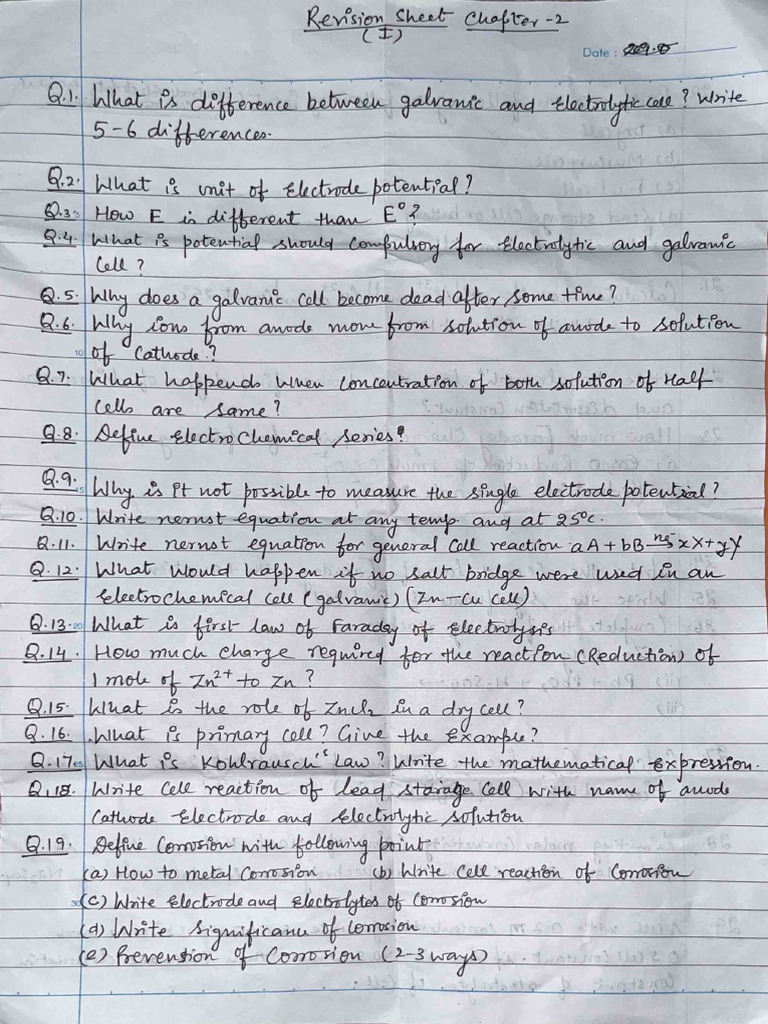 Revision Sheet Chapter-2
(I)
Date :
Q.1. What is difference between galvanic and Electrolytic cell? Write
5-6 differences.
Q.2. What is unit of Electrode potential?
Q.3. How E is different than E°?
Q.4. What is potential should compulsory for Electrolytic and galvanic
Cell?
Q.5. Why does a galvanic cell become dead after some time?
Q.6. Why ions from anode move from solution of anode to solution
10 of Cathode?
Q.7. What happends when concentration of both solution of Half
Cells are same?
Q.8. Define ElectroChemical series?
Q.9. Why is it not possible to measure the single electrode potential?
15
Q.10. Write nernst equation at any temp. and at 25°c.
Q.11. Write nernst equation for general cell reaction aA + bB ne-→ xX + yY
Q.12. What would happen if no salt bridge were used in an
ElectroChemical cell (galvanic) (Zn-Cu cell)
Q.13. 20 What is first law of Faraday of Electrolysis
Q.14. How much charge required for the reaction (Reduction) of
1 mole of Zn2+ to Zn?
Q.15. What is the role of ZnCl2 in a dry cell?
Q.16. What is primary cell? Give the Example?
Q.17. 25 What is Kohlrausch's Law? Write the mathematical Expression.
Q.18. Write cell reaction of lead starage cell with name of anode
Cathode Electrode and Electrolytic solution
Q.19. Define Corrosion with following point
(a) How to metal Corrosion (b) Write Cell reaction of Corrosion
30 (c) Write Electrode and Electrolytes of Corrosion
(d) Write Significance of Corrosion
(e) Prevention of Corrosion (2-3 ways)